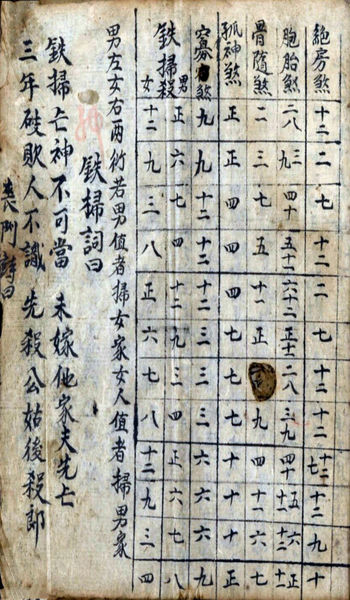 絕房煞 十二 二 七 十二 二 七 十二 十二 十二 九 十
胞胎煞 二八 三九 四十 五十一 六十二 正 二八 三九 四十
骨隨煞 二 三 七 五 十一 正 九 四 十一 六
孤神煞 正 正 四 四 四 七 七 七 十 十 十 正
寡宿煞 九 九 十二 十二 十二 三 三 三 六 六 六 九
鉄掃殺 男 正 六 七 四 十二 九 三 四 正 六 七 八
女 十二 九 三 八 正 六 七 八 十二 九 三 四
男左女右两行若男值者掃女家女人值者掃男家
鉄掃詞曰
鉄掃亡神不可當 未嫁他家夫先亡
三年破敗人不識 先殺公姑後殺郎
喪門詩曰